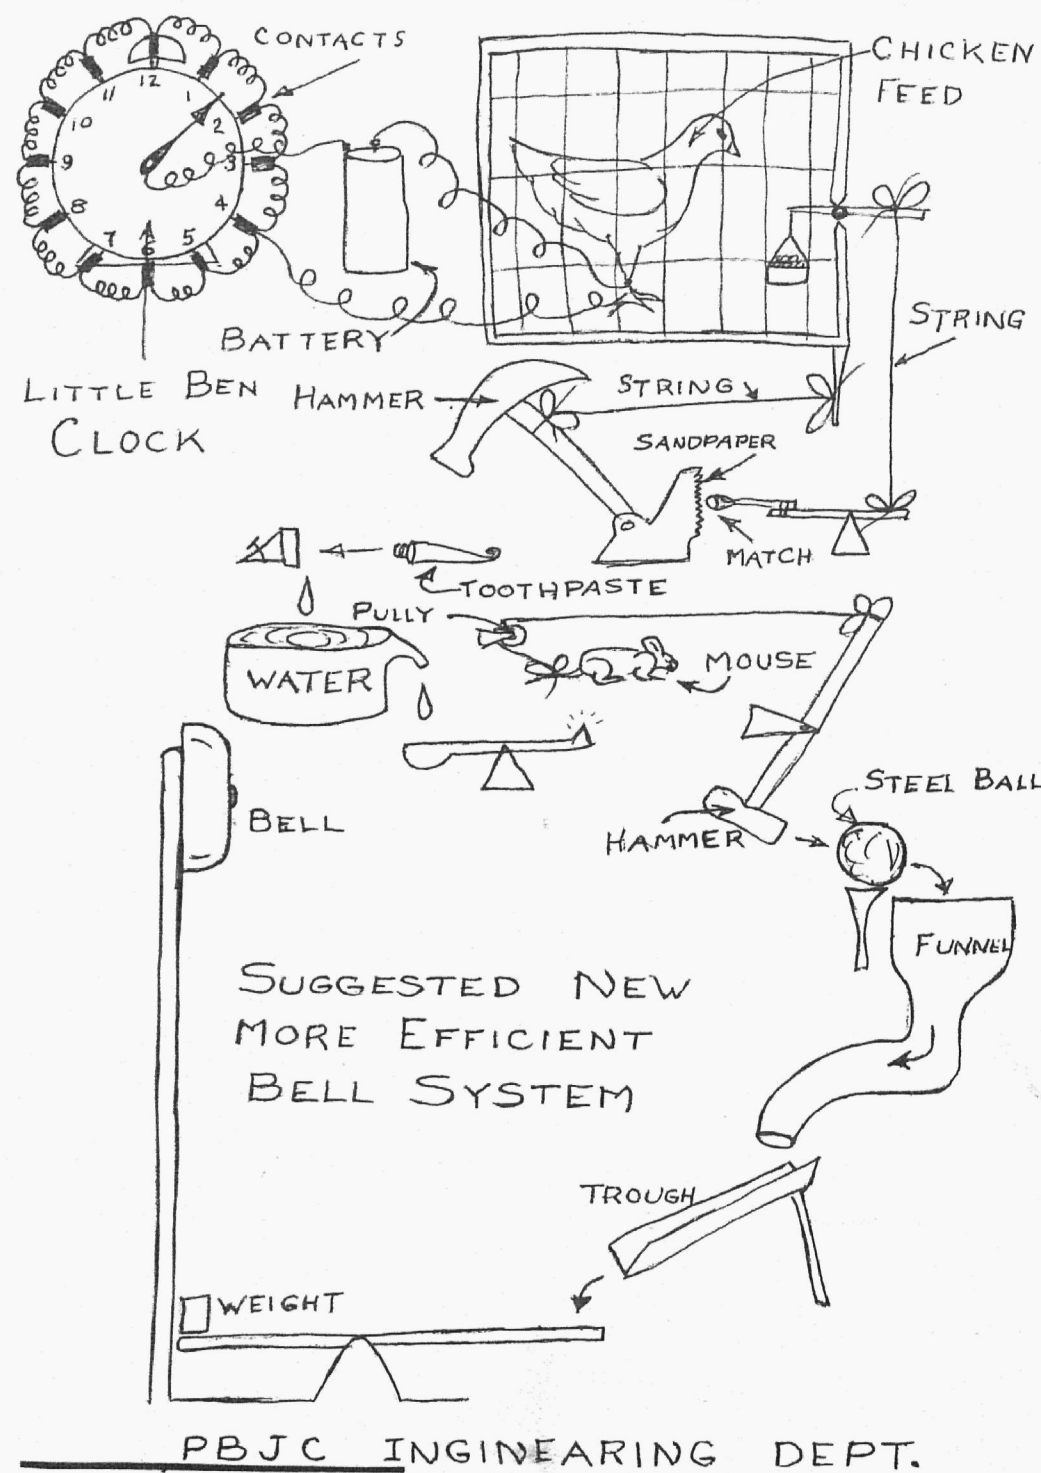 CONTACTS
12
1
2
3
4
5
6
7
8
9
10
11
CHICKEN
FEED
BATTERY
LITTLE BEN
CLOCK
HAMMER
STRING
STRING
SANDPAPER
MATCH
TOOTHPASTE
PULLY
WATER
MOUSE
BELL
STEEL BALL
HAMMER
FUNNEL
SUGGESTED NEW
MORE EFFICIENT
BELL SYSTEM
TROUGH
WEIGHT
PBJC INGINEARING DEPT.